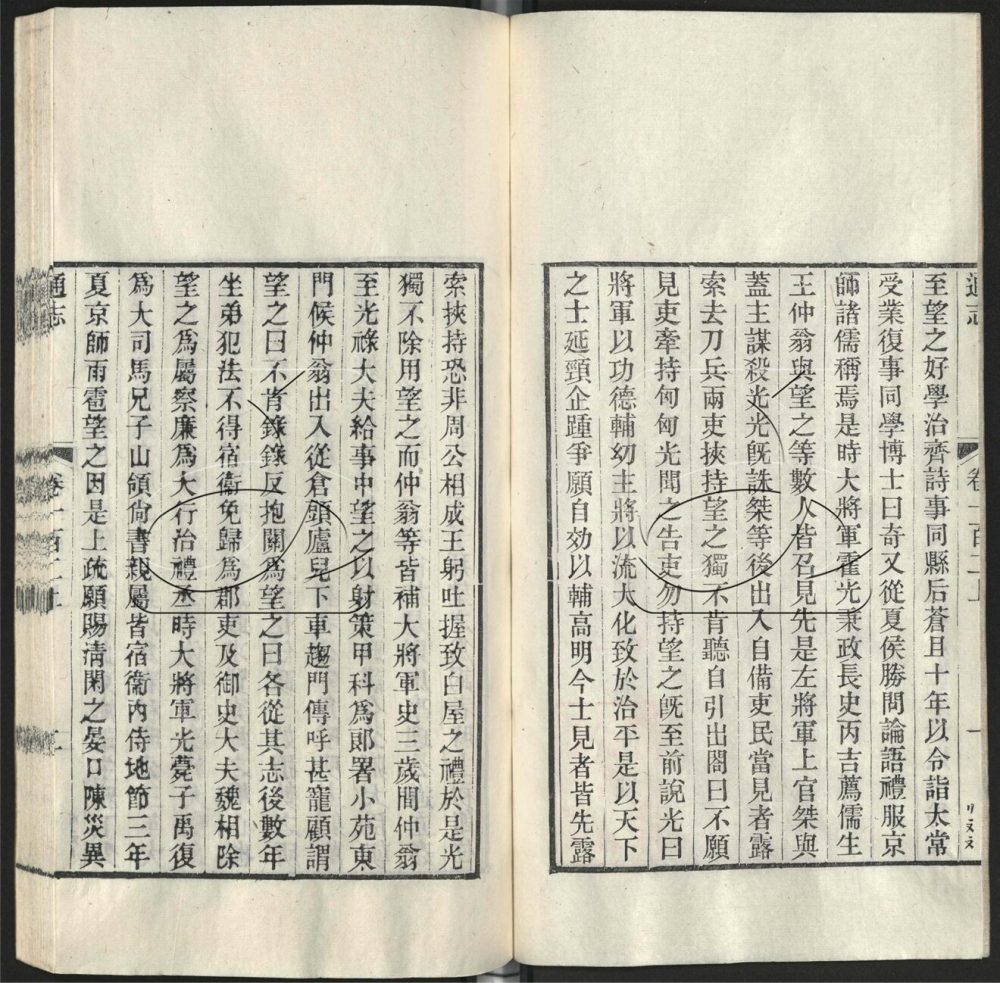 通志
卷一百二上
一
至望之好學治齊詩事同縣后蒼且十年以令詣太常
受業復事同學博士白奇又從夏侯勝問論語禮服京
師諸儒稱焉是時大將軍霍光秉政長史丙吉薦儒生
王仲翁與望之等數人皆召見先是左將軍上官桀與
蓋主謀殺光光旣誅桀等後出入自備吏民當見者露
索去刀兵兩吏挾持望之獨不肯聽自引出閤曰不願
見吏牽持匈匈光聞之告吏勿持望之旣至前說光曰
將軍以功德輔幼主將以流大化致於治平是以天下
之士延頸企踵爭願自効以輔高明今士見者皆先露
索挾持恐非周公相成王躬吐握致白屋之禮於是光
獨不除用望之而仲翁等皆補大將軍史三歲間仲翁
至光祿大夫給事中望之以射策甲科爲郞署小苑東
門候仲翁出入從倉頭廬兒下車趨門傳呼甚寵顧謂
望之曰不肯錄錄反抱關爲望之曰各從其志後數年
坐弟犯法不得宿衞免歸爲郡吏及御史大夫魏相除
望之爲屬察廉爲大行治禮丞時大將軍光薨子禹復
爲大司馬兄子山領尙書親屬皆宿衞內侍地節三年
夏京師雨雹望之因是上疏願賜淸閑之晏口陳災異
通志